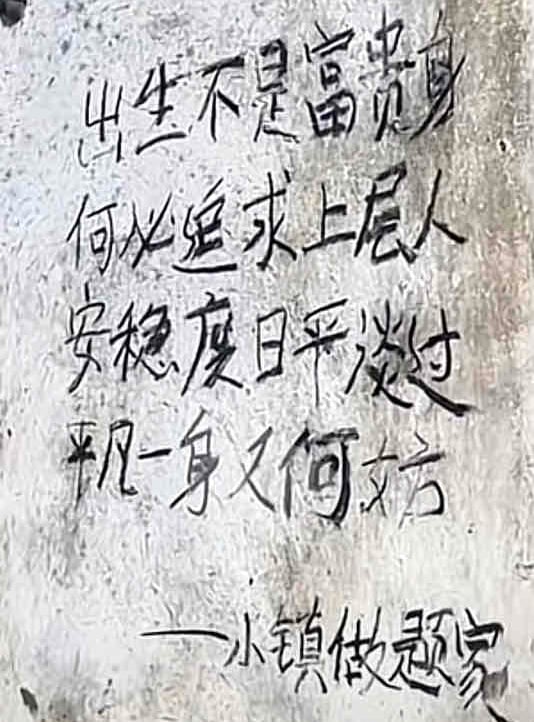 出生不是富贵身
何必追求上层人
安稳度日平淡过
平凡一身又何妨
——小镇做题家